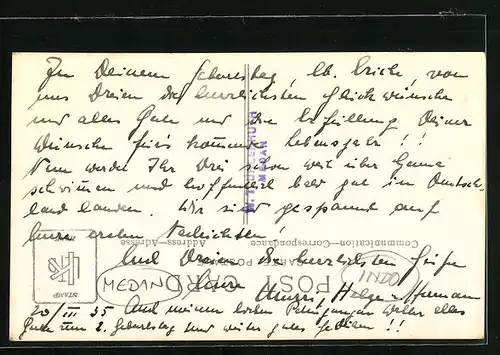 Zu Deinem Geburtstag, lb. Erich, von
uns Dreien die herzlichsten Glückwünsche
und alles Gute und die Erfüllung Deiner
Wünsche für's kommende Lebensjahr!!
Nun werdet Ihr Drei schon weit über
schwimen und hoffentlich bald gut in Deutsch-
land landen. Wir sind gespannt auf
Eure ersten Nachrichten!
Communication-Correspondance Address-Adresse
Und Dreien die herzlichsten Grüße
POST CARD
CARTE POSTALE
STAMP
MEDAN
INDO
Eure
MEDAN
20/III 35 Und meinen lieben alles
Gute zum 2. Geburtstag und weiter gutes Gedeihen!!